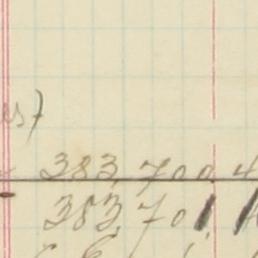 es)
383,700.4
383,701.1